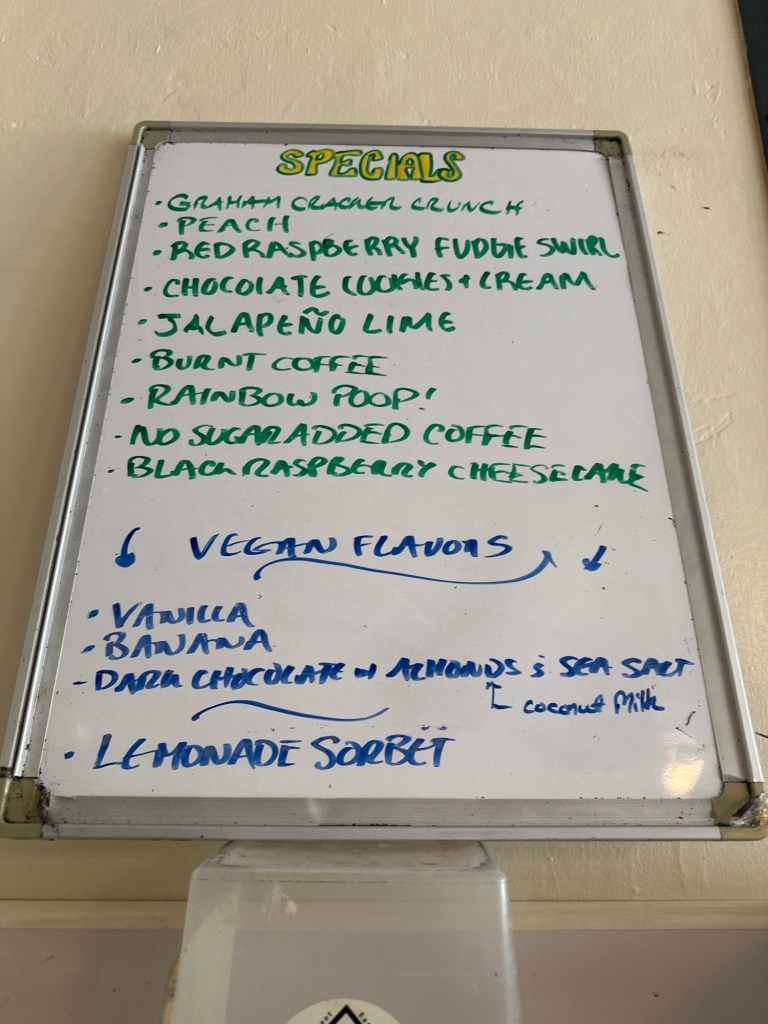 SPECIALS
• GRAHAM CRACKER CRUNCH
• PEACH
• RED RASPBERRY FUDGE SWIRL
• CHOCOLATE COOKIES + CREAM
• JALAPEÑO LIME
• BURNT COFFEE
• RAINBOW POOP!
• NO SUGAR ADDED COFFEE
• BLACK RASPBERRY CHEESECAKE
↓ VEGAN FLAVORS ↓
• VANILLA
• BANANA
- DARK CHOCOLATE W ALMONDS & SEA SALT
coconut Milk
• LEMONADE SORBET